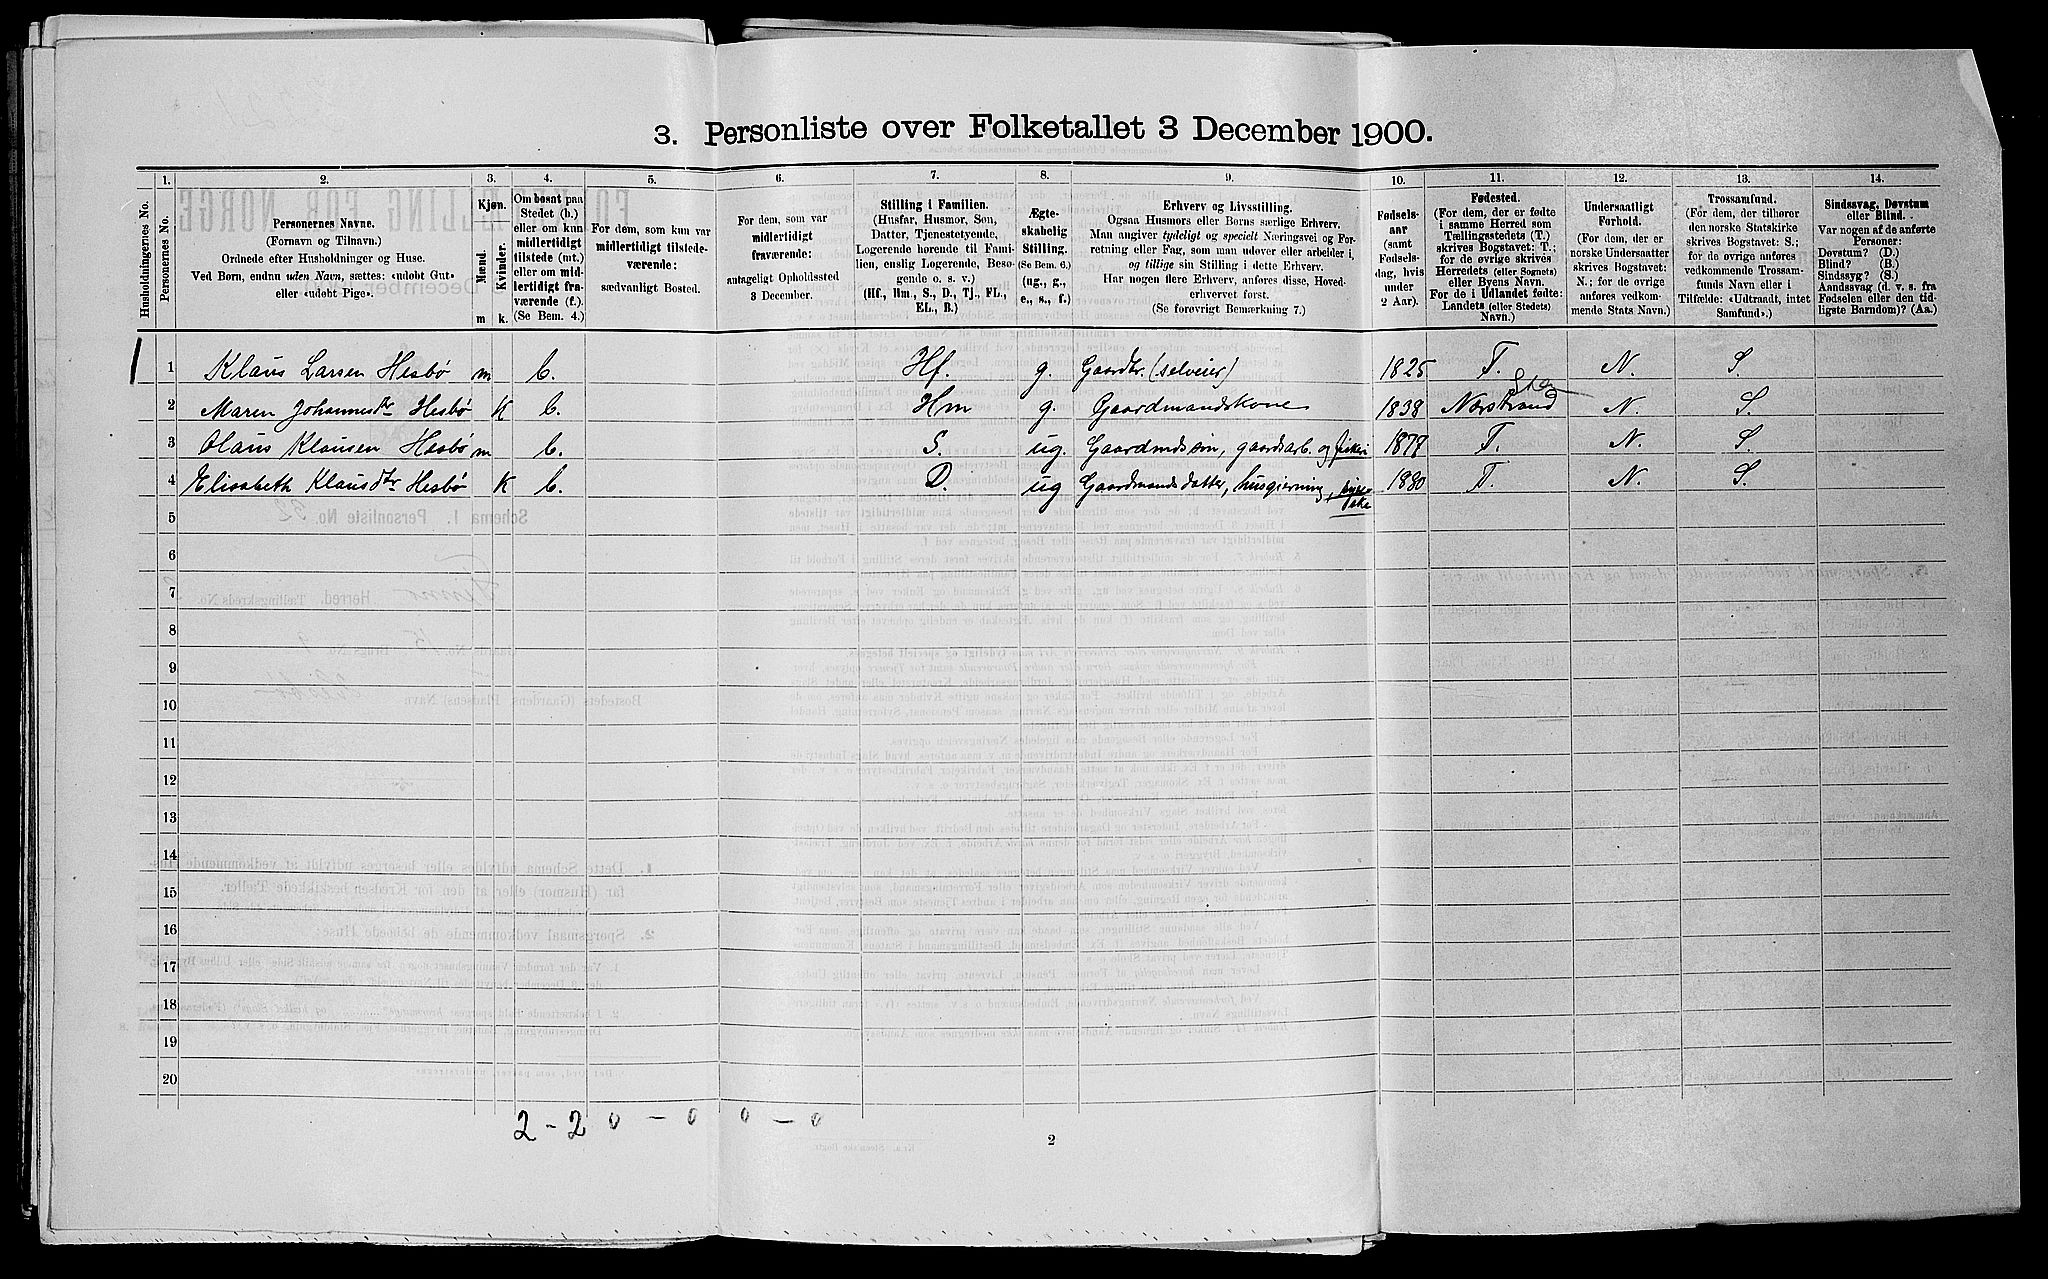 3. Personliste over Folketallet 3 December 1900.
Husholdningernes No.
1.
Personernes No.
2.
Personernes Navne.
(Fornavn og Tilnavn.)
Ordnede efter Husholdninger og Huse.
Ved Børn, endnu uden Navn, sættes: «udøbt Gut»
eller «udøbt Pige».
3.
Kjøn.
Mænd.
Kvinder.
m k.
4.
Om bosat paa
Stedet (b.)
eller om kun
midlertidigt
tilstede (mt.)
eller om mid-
lertidigt fra-
værende (f.).
(Se Bem. 4.)
5.
For dem, som kun var
midlertidigt tilstede-
værende:
sædvanligt Bosted.
6.
For dem, som var
midlertidigt
fraværende:
antageligt Opholdssted
3 December.
7.
Stilling i Familien.
(Husfar, Husmor, Søn,
Datter, Tjenestetyende,
Logerende hørende til Fami-
lien, enslig Logerende, Besø-
gende o. s. v.)
(Hf., Hm., S., D., Tj., FL.,
EL., B.)
8.
Ægte-
skabelig
Stilling.
(Se Bem. 6.)
(ug., g.,
e., s., f.)
9.
Erhverv og Livsstilling.
Ogsaa Husmors eller Børns særlige Erhverv.
Man angiver tydeligt og specielt Næringsvei og For-
retning eller Fag, som man udøver eller arbeider i,
og tillige sin Stilling i dette Erhverv.
Har nogen flere Erhverv, anføres disse, Hoved-
erhvervet først.
(Se forøvrigt Bemærkning 7.)
10.
Fødsels-
aar
(samt
Fødsels-
dag, hvis
under
2 Aar).
11.
Fødested.
(For dem, der er fødte
i samme Herred som
Tællingsstedets (T.)
skrives Bogstavet: T.;
for de øvrige skrives
Herredets (eller Sognets)
eller Byens Navn.
For de i Udlandet fødte:
Landets (eller Stedets)
Navn.)
12.
Undersaatligt
Forhold.
(For dem, der er
norske Undersaatter
skrives Bogstavet:
N.; for de øvrige
anføres vedkom-
mende Stats Navn.)
13.
Trossamfund.
(For dem, der tilhører
den norske Statskirke
skrives Bogstavet: S.;
for de øvrige anføres
vedkommende Trossam-
funds Navn eller i
Tilfælde: «Udtraadt, intet
Samfund».)
14.
Sindssvag, Døvstum
eller Blind.
Var nogen af de anførte
Personer:
Døvstum? (D.)
Blind? (B.)
Sindssyg? (S.)
Aandssvag (d. v. s. fra
Fødselen eller den tid-
ligste Barndom)? (Aa.)
1 Klaus Larsen Hesbø m b. Hf. g. Gaardbr. (selveier) 1825 T. N. S.
2 Maren Johannesdtr Hesbø K b. Hm g. Gaardmandskone 1838 Norstrand N. S.
3 Olaus Klausen Hesbø m b. S. ug. Gaardmdssøn, gaardsarb. og fiskeri 1877 T. N. S.
4 Elisabeth Klausdtr Hesbø K b. D. ug Gaardmandsdatter, husgjerning, 1880 T. N. S.
5
6
7
8
9
10
11
12
13
14
15
16
17
18
19
20
2 - 2 0 - 0 0 - 0
2